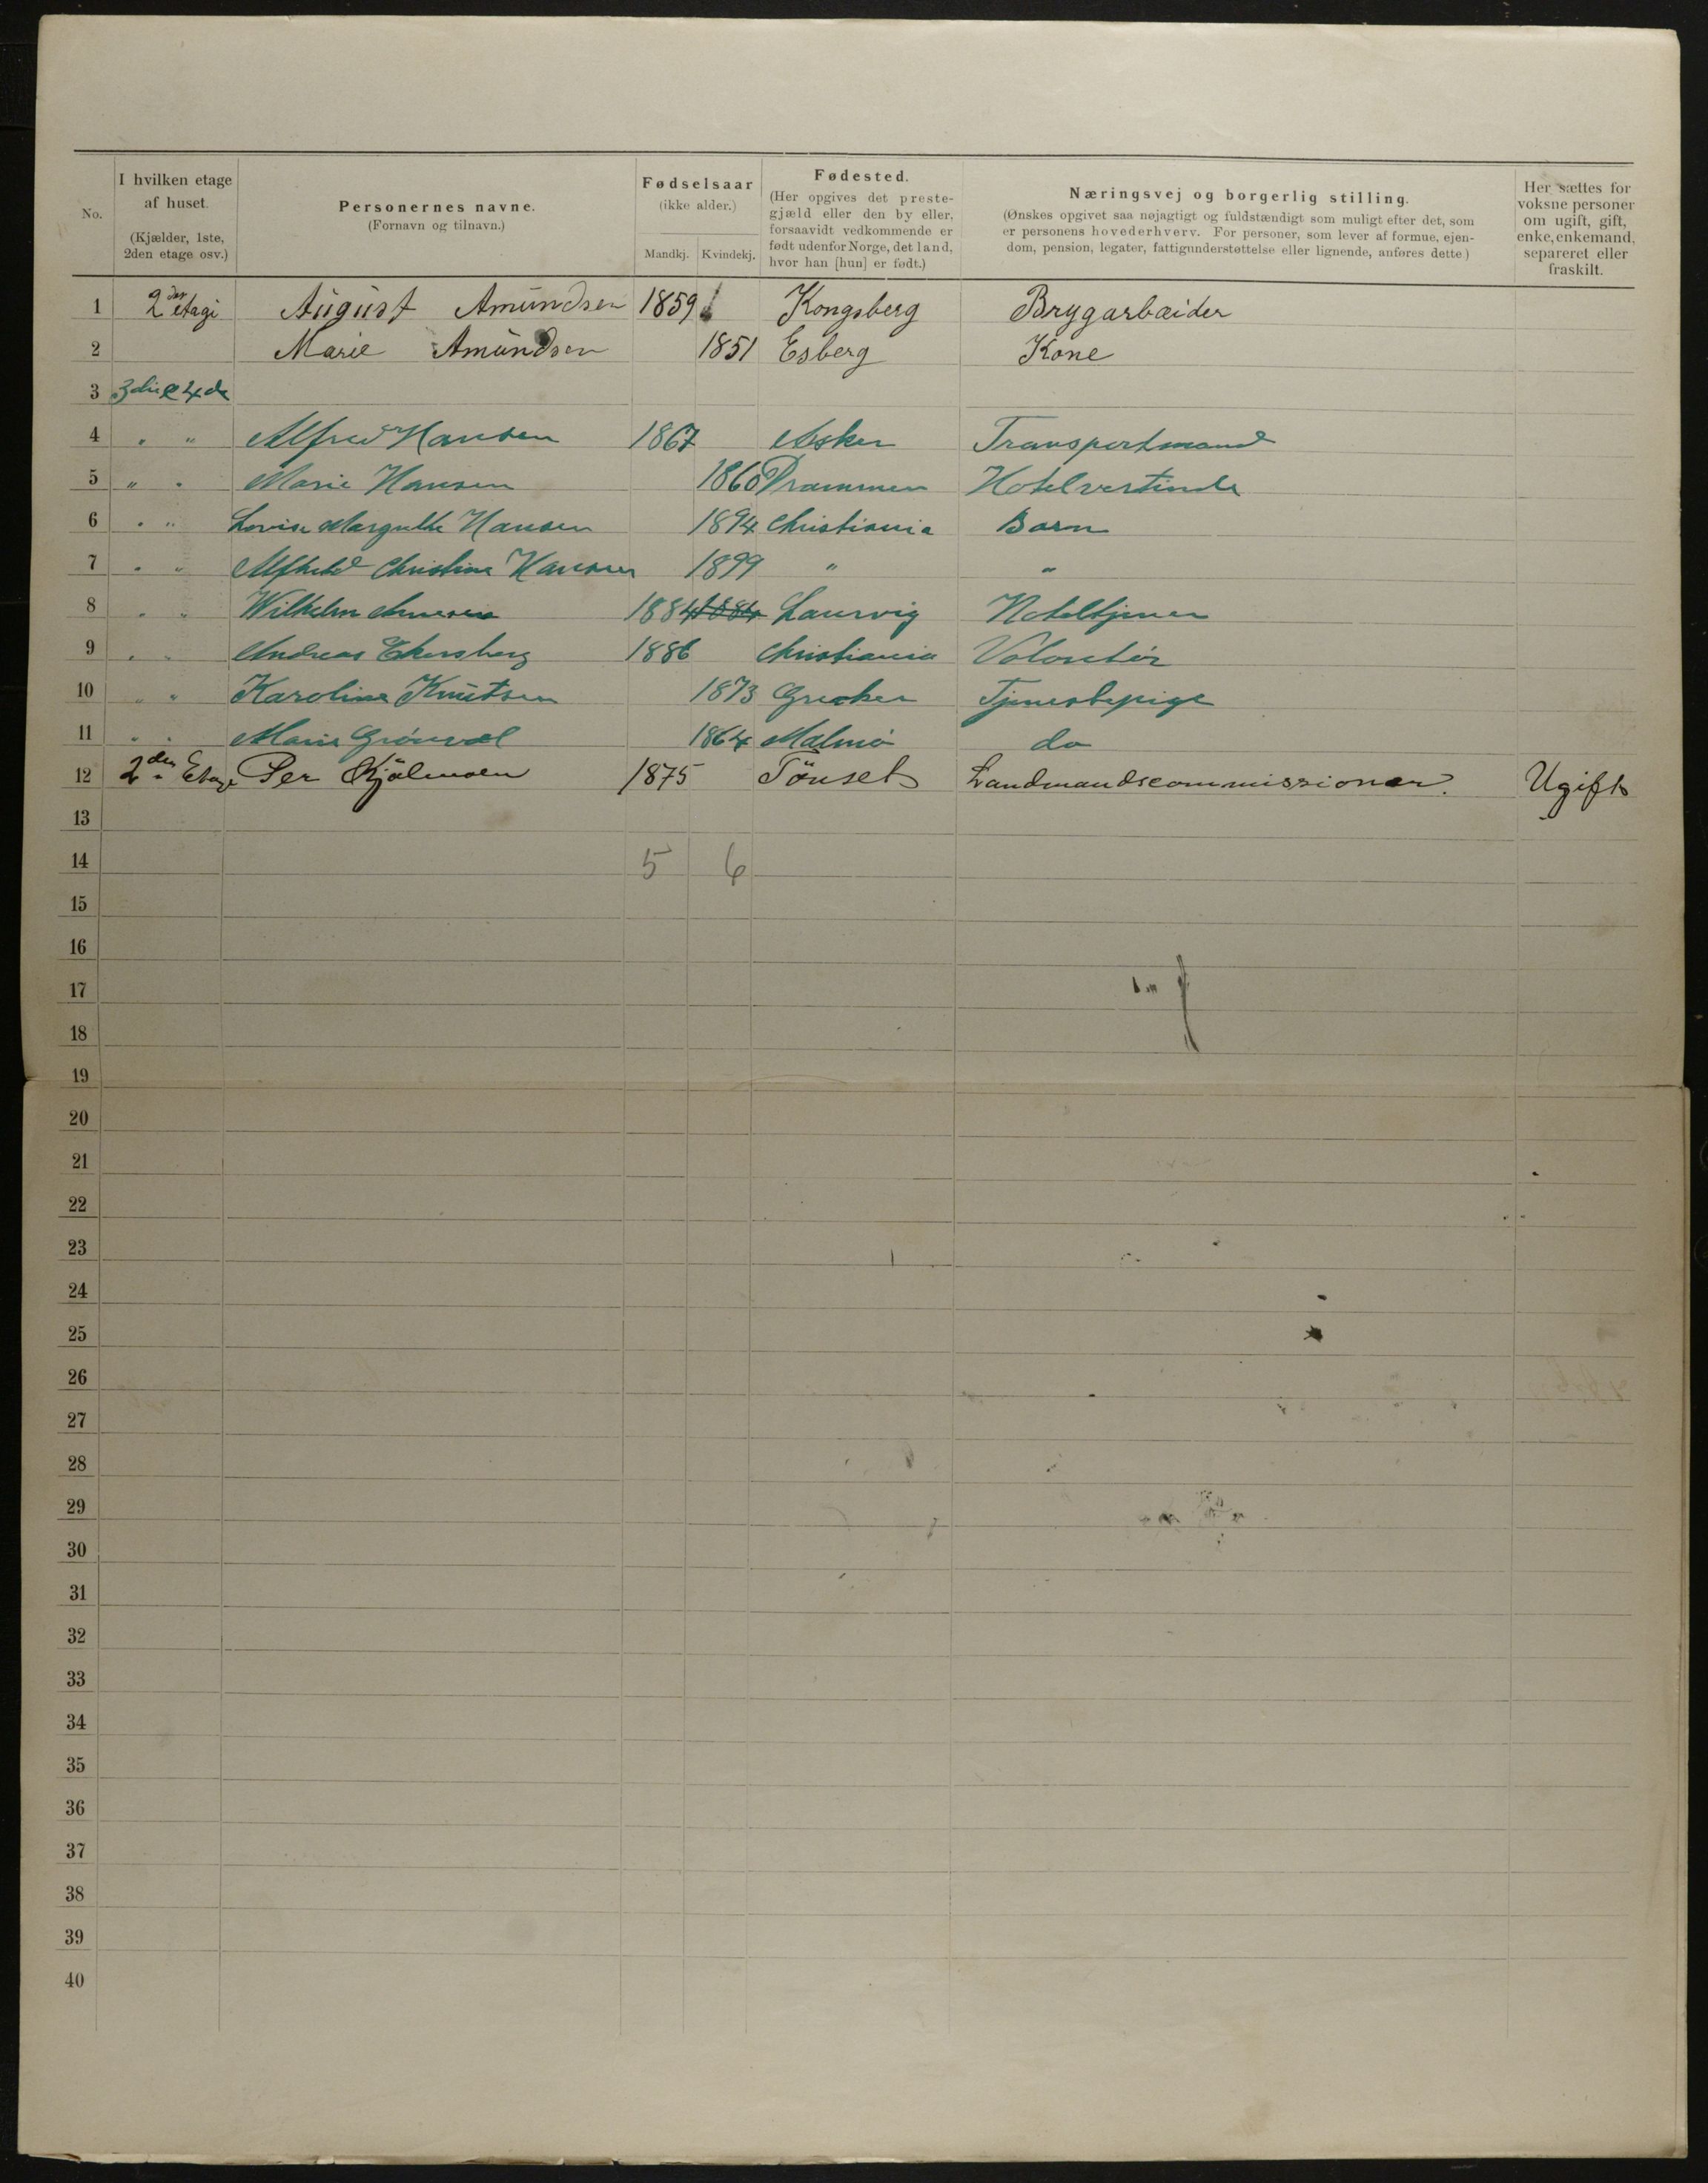 No.
I hvilken etage af huset. (Kjælder, 1ste, 2den etage osv.)
Personernes navne. (Fornavn og tilnavn.)
Fødselsaar (ikke alder.) Mandkj. Kvindekj.
Fødested. (Her opgives det prestegjæld eller den by eller, forsaavidt vedkommende er født udenfor Norge, det land, hvor han [hun] er født.)
Næringsvej og borgerlig stilling. (Ønskes opgivet saa nøjagtigt og fuldstændigt som muligt efter det, som er personens hovederhverv. For personer, som lever af formue, ejendom, pension, legater, fattigunderstøttelse eller lignende, anføres dette.)
Her sættes for voksne personer om ugift, gift, enke, enkemand, separeret eller fraskilt.
1 2den etagi August Amundsen 1859 Kongsberg Brygarbæider
2 Marie Amundsen 1851 Esberg Kone
3 3die & 4de
4 " " Alfred Hansen 1867 Asker Transportmand
5 " " Marie Hansen 1868 Drammen Hotelvertinde
6 " " Lovise Margrethe Hansen 1894 Christiania Barn
7 " " Alfhild Christine Hansen 1899 " "
8 " " Wilhelm 1884 1884 Laurvig Hoteltjener
9 " " Andreas Ekersberg 1886 Christiania Volontør
10 " " Karoline Knutsen 1873 Tjenestepige
11 " " Marie Grönval 1864 Malmö do
12 2den Etage Per Kjölmoen 1875 Tönset Landmandscommissionær. Ugift
13
14 5 6
15
16
17
18
19
20
21
22
23
24
25
26
27
28
29
30
31
32
33
34
35
36
37
38
39
40